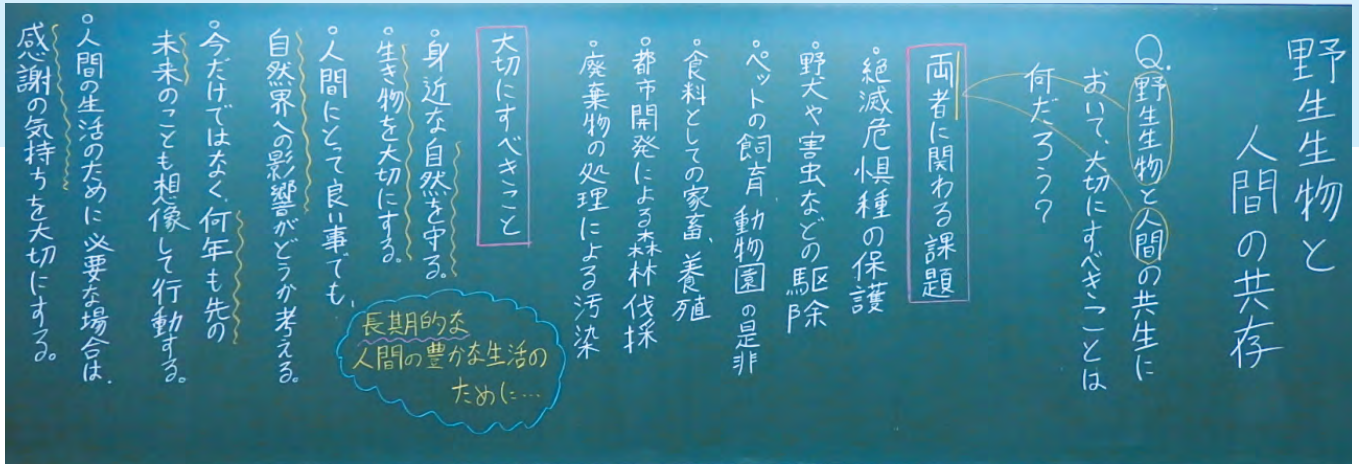 野生生物と
人間の共存
Q.野生生物と人間の共生に
おいて、大切にすべきことは
何だろう？
両者に関わる課題
・絶滅危惧種の保護
・野犬や害虫などの駆除
・ペットの飼育、動物園の是非
・食料としての家畜、養殖
・都市開発による森林伐採
・廃棄物の処理による汚染
大切にすべきこと
・身近な自然を守る。
・生き物を大切にする。
・人間にとって良い事でも、
自然界への影響がどうか考える。
・今だけではなく、何年も先の
未来のことも想像して行動する。
・人間の生活のために必要な場合は、
感謝の気持ちを大切にする。
長期的な
人間の豊かな生活の
ために…